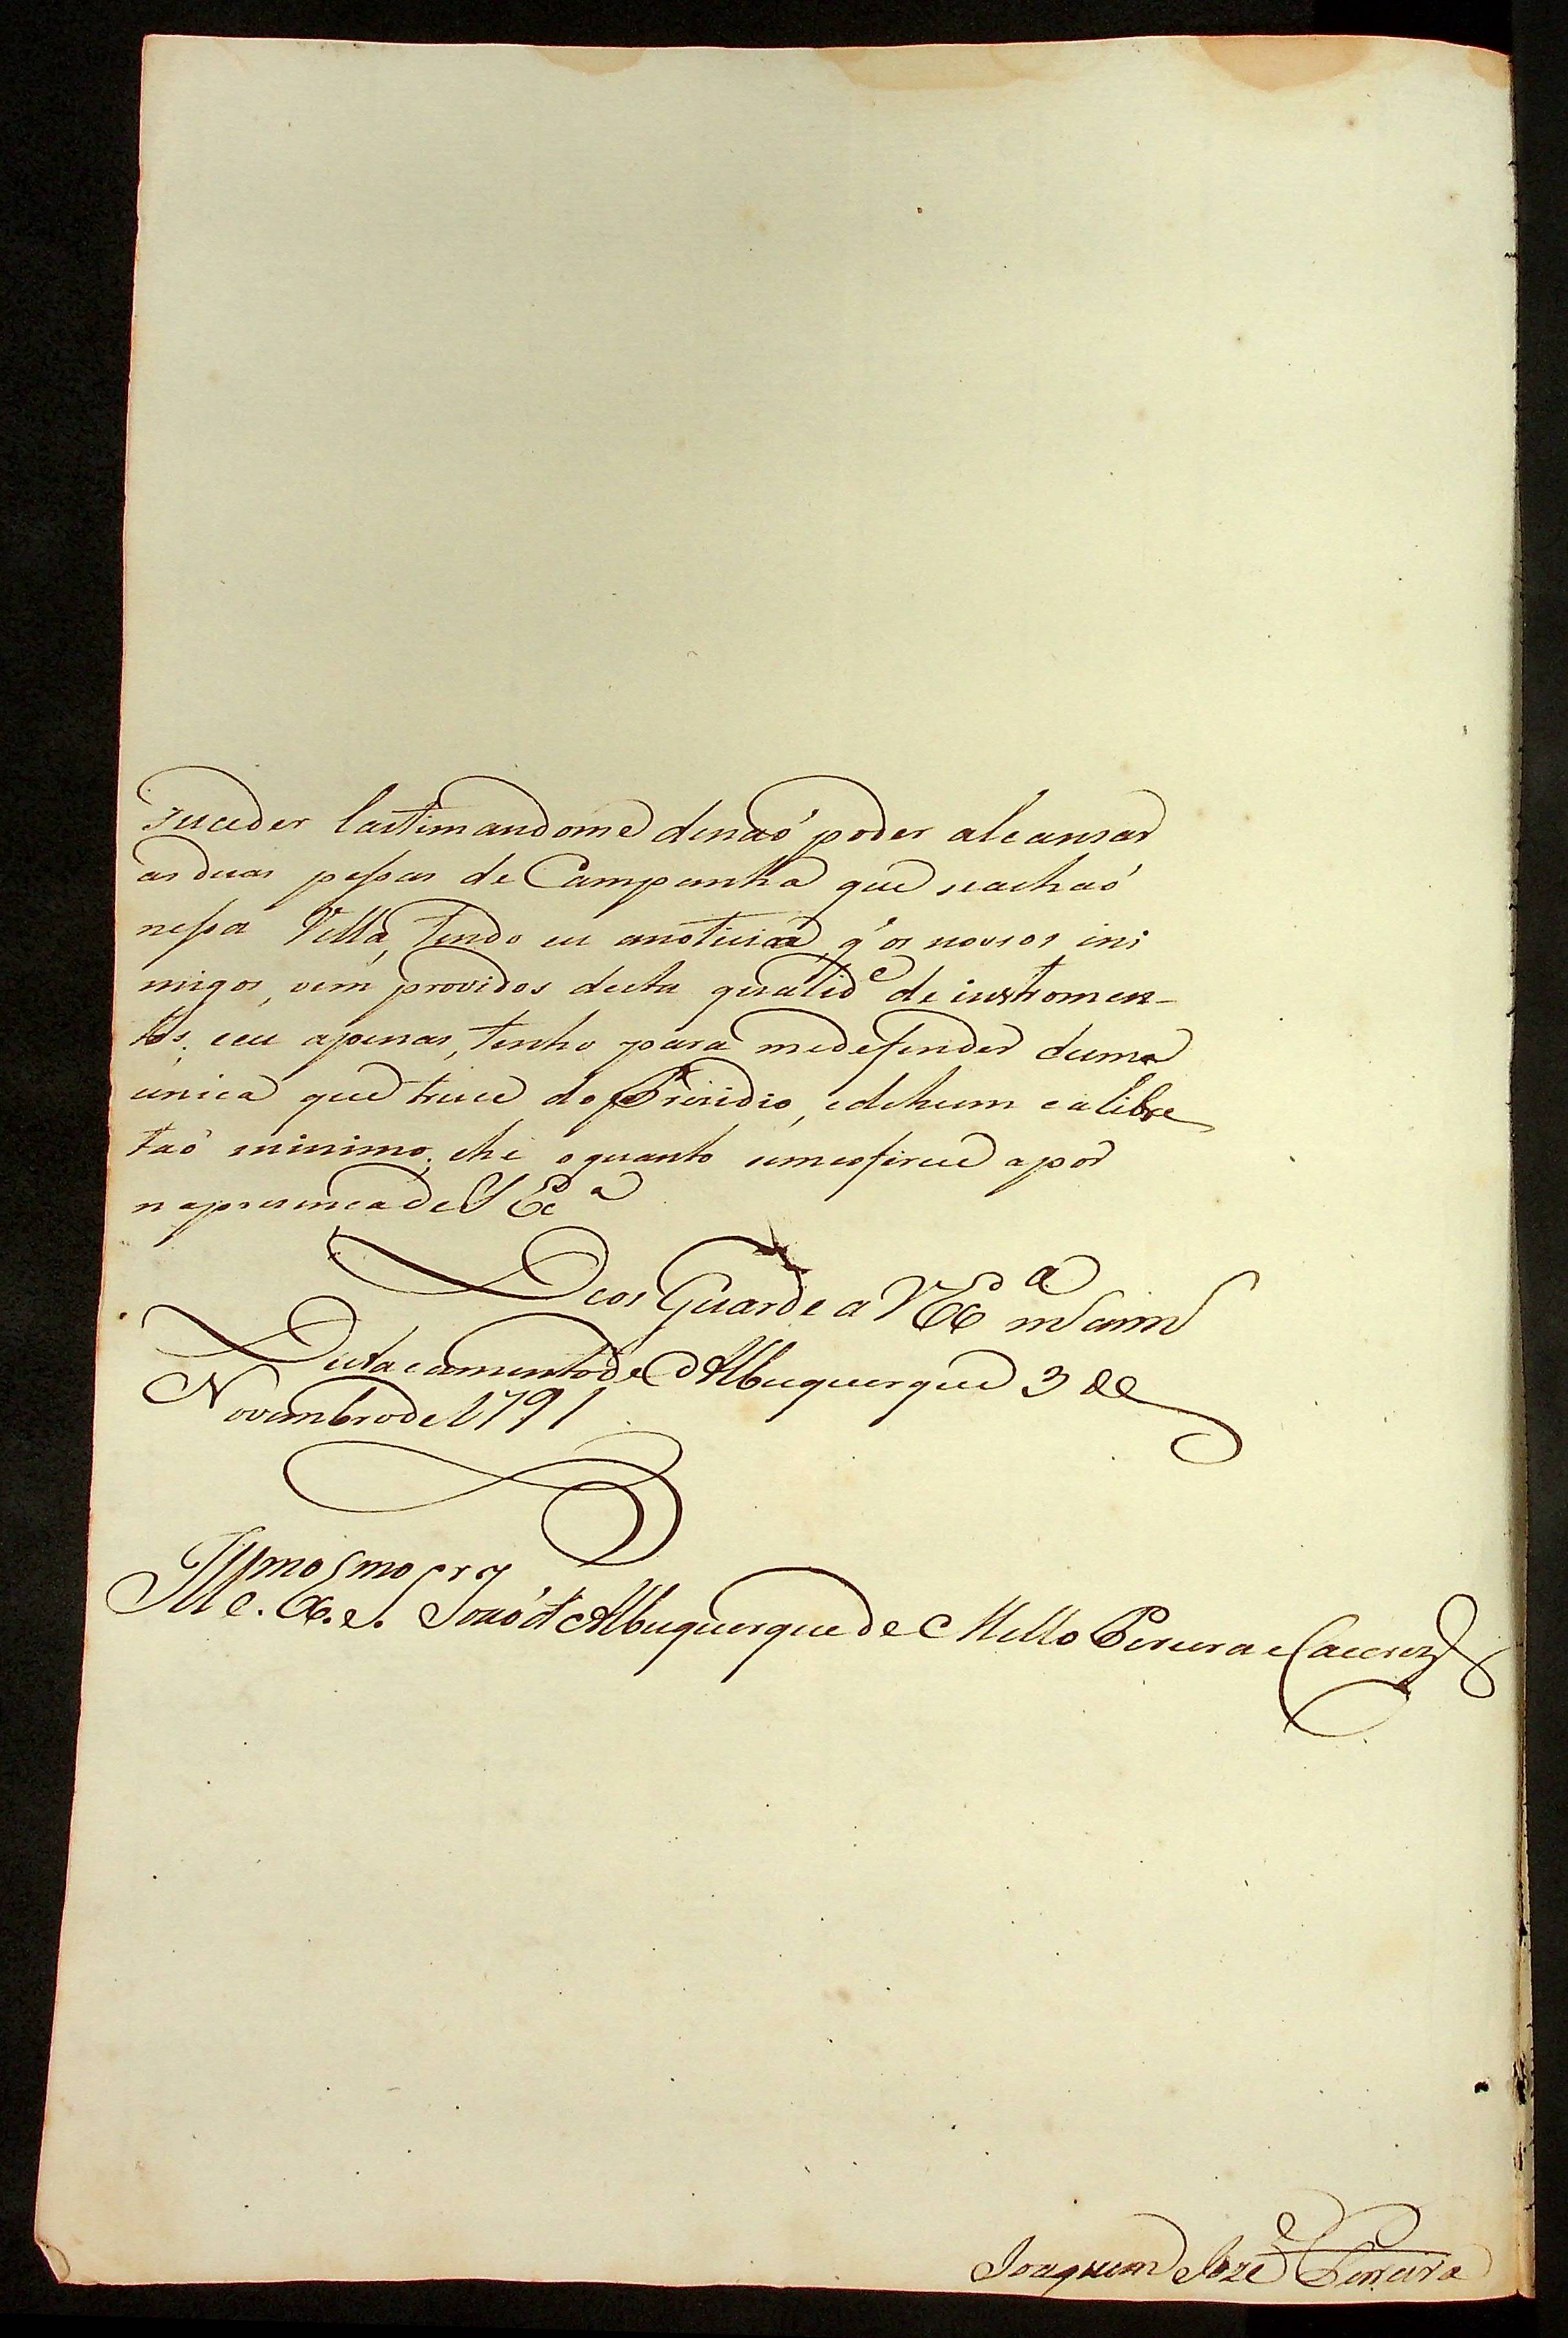 suceder lastimandome denaõ poder alcansar
as duas pessas de Campanha que seachaõ
nessa Villa, tendo eu anoticia q̃ os nossos ini
migos, vem providos desta qualid.e de instromen-
tos, eeu apenas, tenho para medefender duma
unica que truce do Prezidio, edehum calibre
taõ minimo; he oquanto semeoferece apor
napresenca de V Ex.a
Deos Guarde a V Ex.a m.s ann.s
Destacamento de Albuquerque 3 de
Novembro de 1791
Ill.mo e Ex.mo S.r Joaõ d' Albuquerque de Mello Pereira e Caceres
Joaquim Joze Ferreira